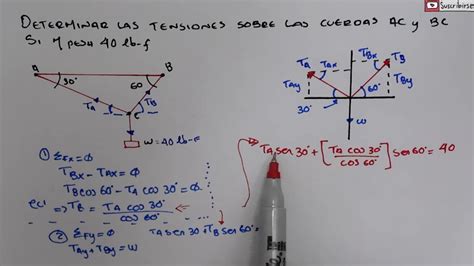 Suscribirse
DETERMINAR LAS TENSIONES SOBRE LAS CUERDAS AC y BC
SI M PESA 40 lb-f
A
B
30°
60°
TA
TB
C
W=40 lb-F
TA
TAx
TBx
TB
TAy
TBy
30°
60°
W
① ΣFx=∅
TBx - TAx = ∅
TB cos 60° - TA cos 30° = ∅
ec1 => TB = TA cos 30° / cos 60°
② ΣFy = ∅
TAy + TBy = W
TA sen 30° + TB sen 60° =
TA sen 30° + [TA cos 30° / cos 60°] sen 60° = 40